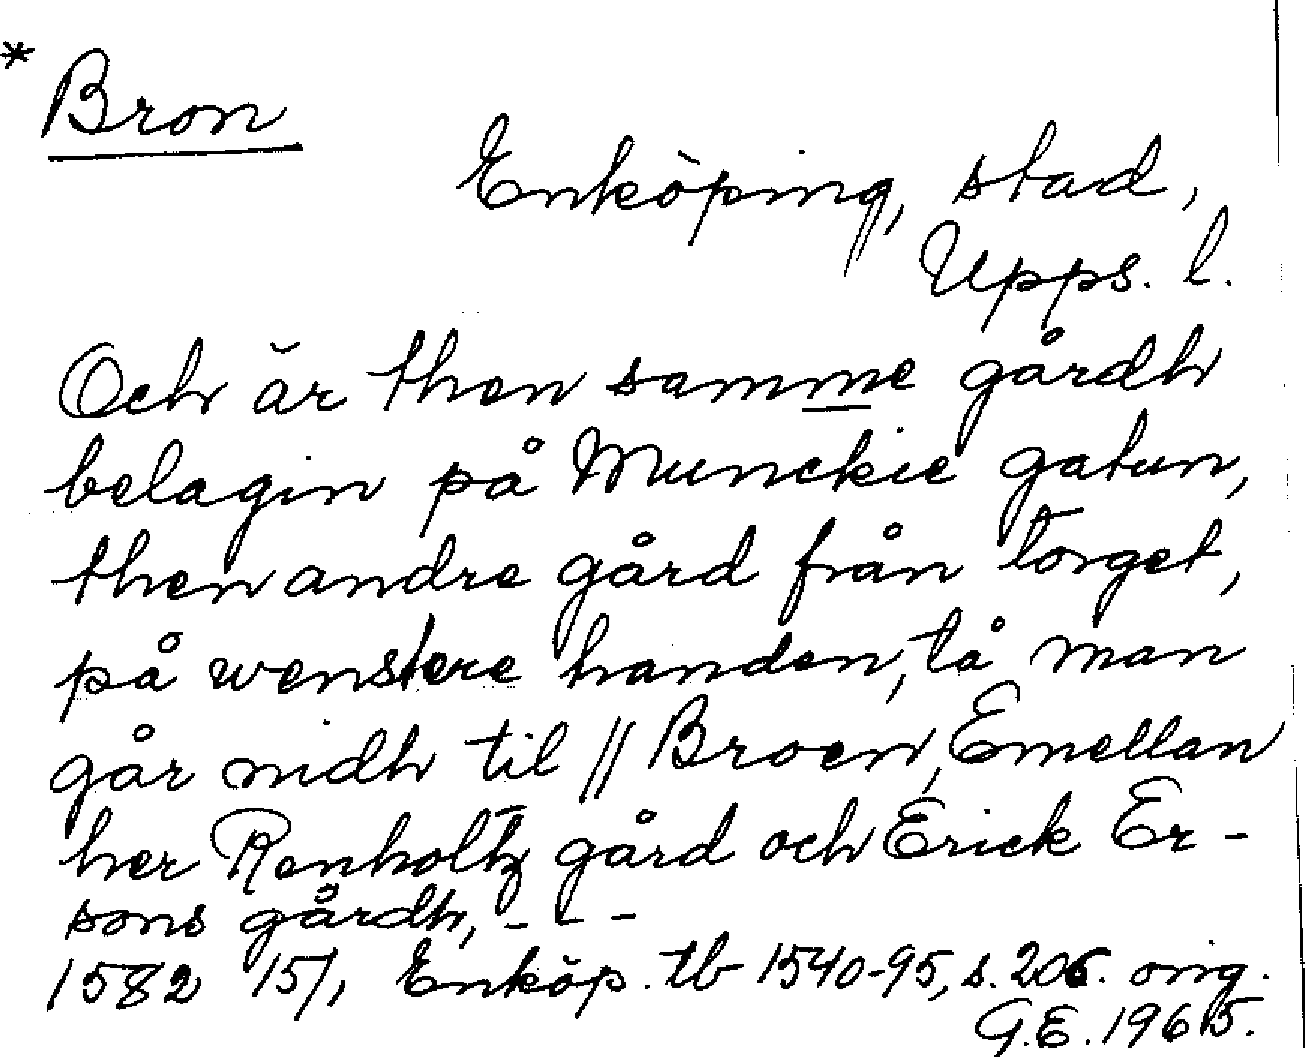 * Bron
Enköping, stad,
Upps. l.
Och är then samme gårdh
belagin på Munckie gatun,
then andre gård från torget,
på wenstere handen, tå man
går nidh til || Broen, Emellan
her Renholtz gård och Erick Er-
sons gårdh, - - -
1582 15/1, Enköp. tb 1540-95, s. 206. orig.
G.E. 1965.